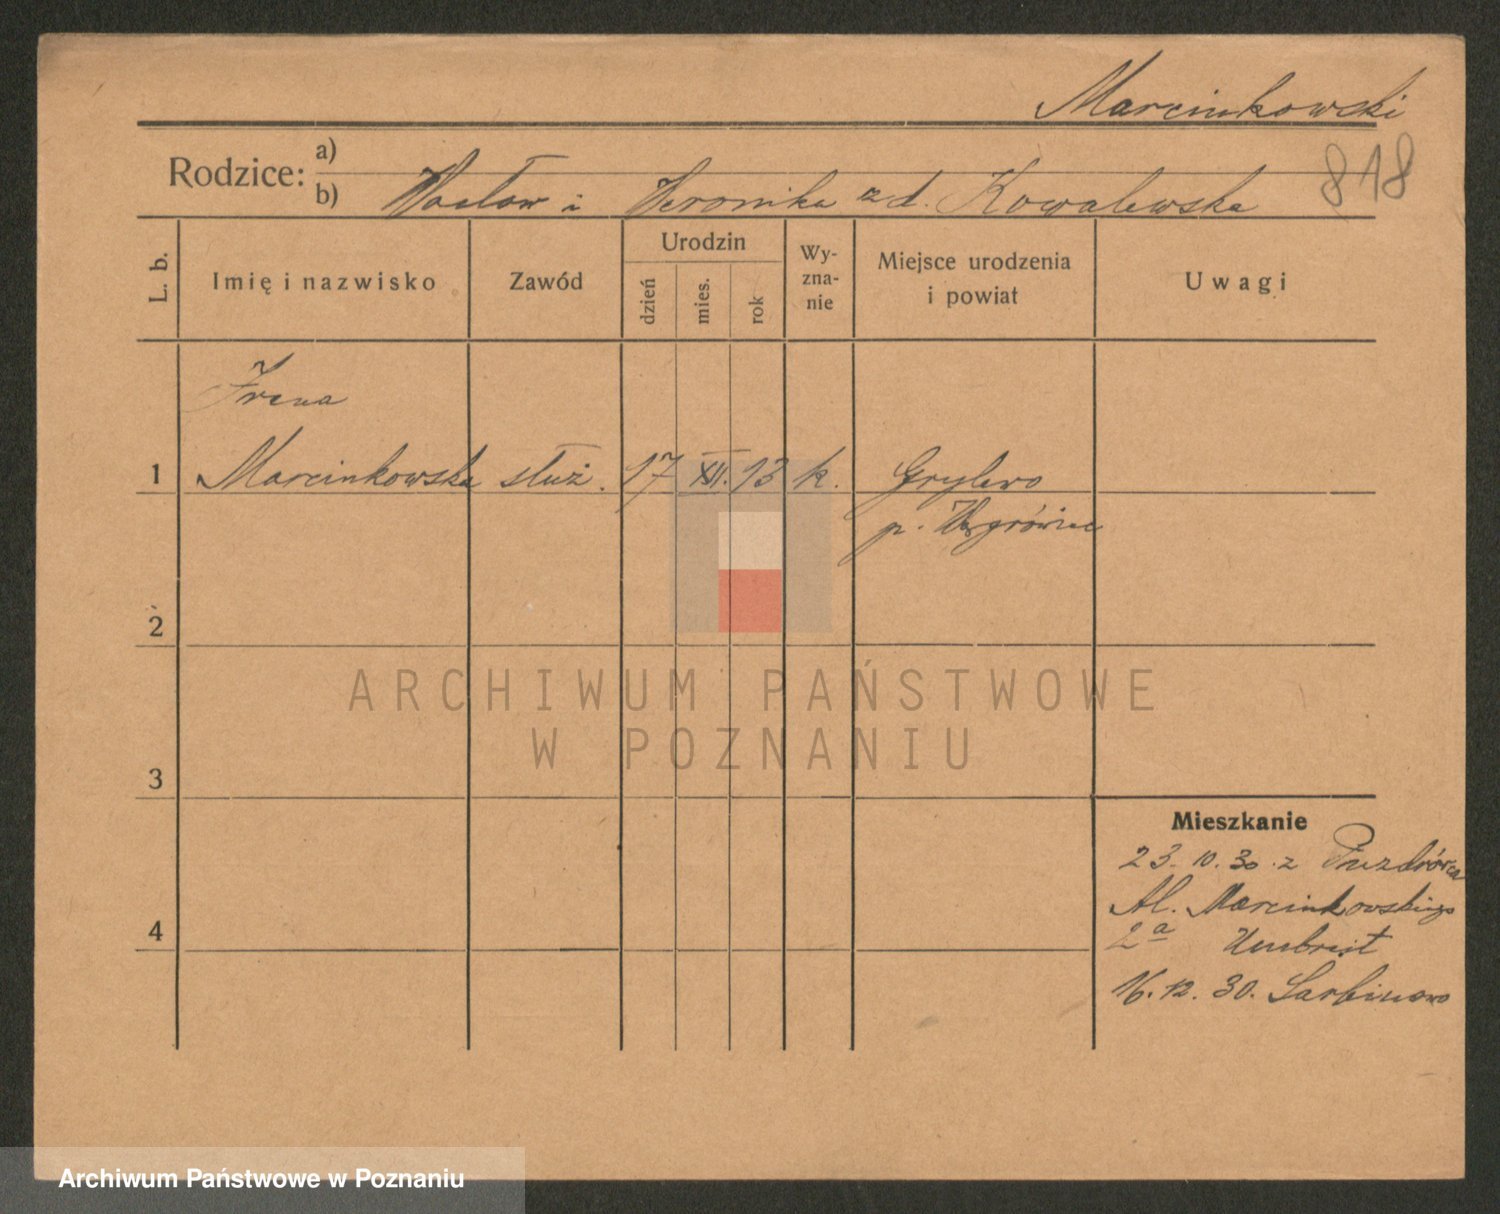 Marcinkowski
818
Rodzice: a)
b) Wacław i Weronika z d. Kowalewska
L. b.
Imię i nazwisko
Zawód
Urodzin
dzień
mies.
rok
Wy-
zna-
nie
Miejsce urodzenia
i powiat
Uwagi
Irena
1 Marcinkowska służ. 17 XII. 13 k. Grylewo
p. Wągrówiec
2
3
4
Mieszkanie
23. 10. 30. z
Al. Marcinkowskiego
2a Umbreit
16. 12. 30. Sarbinowo
ARCHIWUM PAŃSTWOWE
W POZNANIU
Archiwum Państwowe w Poznaniu